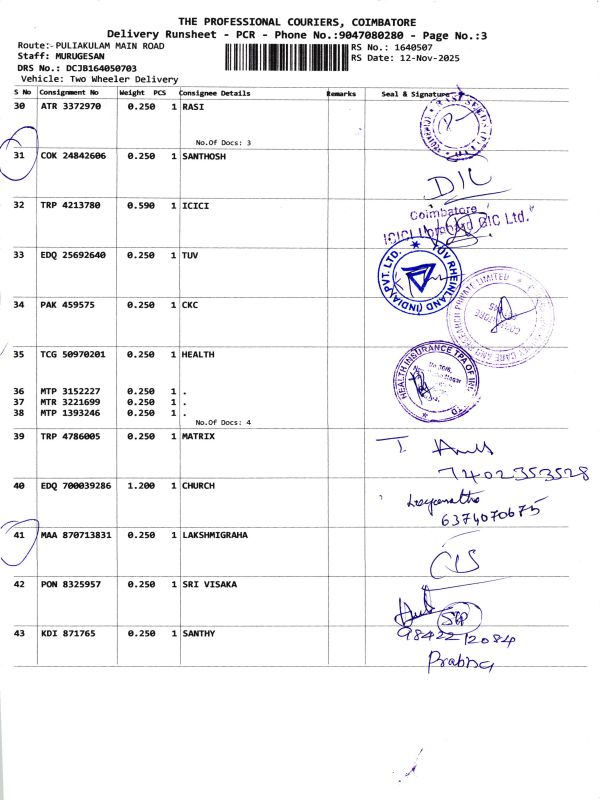 THE PROFESSIONAL COURIERS, COIMBATORE
Delivery Runsheet - PCR - Phone No.:9047080280 - Page No.:3
Route:- PULIAKULAM MAIN ROAD RS No.: 1640507
Staff: MURUGESAN RS Date: 12-Nov-2025
DRS No.: DCJB164050703
Vehicle: Two Wheeler Delivery
S No Consignment No Weight PCS Consignee Details Remarks Seal & Signature
30 ATR 3372970 0.250 1 RASI
No.Of Docs: 3
31 COK 24842606 0.250 1 SANTHOSH
D/L
32 TRP 4213780 0.590 1 ICICI
Coimbatore
ICICI Lombard GIC Ltd.
33 EDQ 25692640 0.250 1 TUV
TUV RHEINLAND (INDIA) PVT. LTD.
34 PAK 459575 0.250 1 CKC
CARE AND RESEARCH PRIVATE LIMITED
35 TCG 50970201 0.250 1 HEALTH
HEALTH INSURANCE TPA OF
36 MTP 3152227 0.250 1 .
37 MTR 3221699 0.250 1 .
38 MTP 1393246 0.250 1 .
No.Of Docs: 4
39 TRP 4786005 0.250 1 MATRIX
7402353528
40 EDQ 700039286 1.200 1 CHURCH
6374070675
41 MAA 870713831 0.250 1 LAKSHMIGRAHA
42 PON 8325957 0.250 1 SRI VISAKA
9842212084
43 KDI 871765 0.250 1 SANTHY